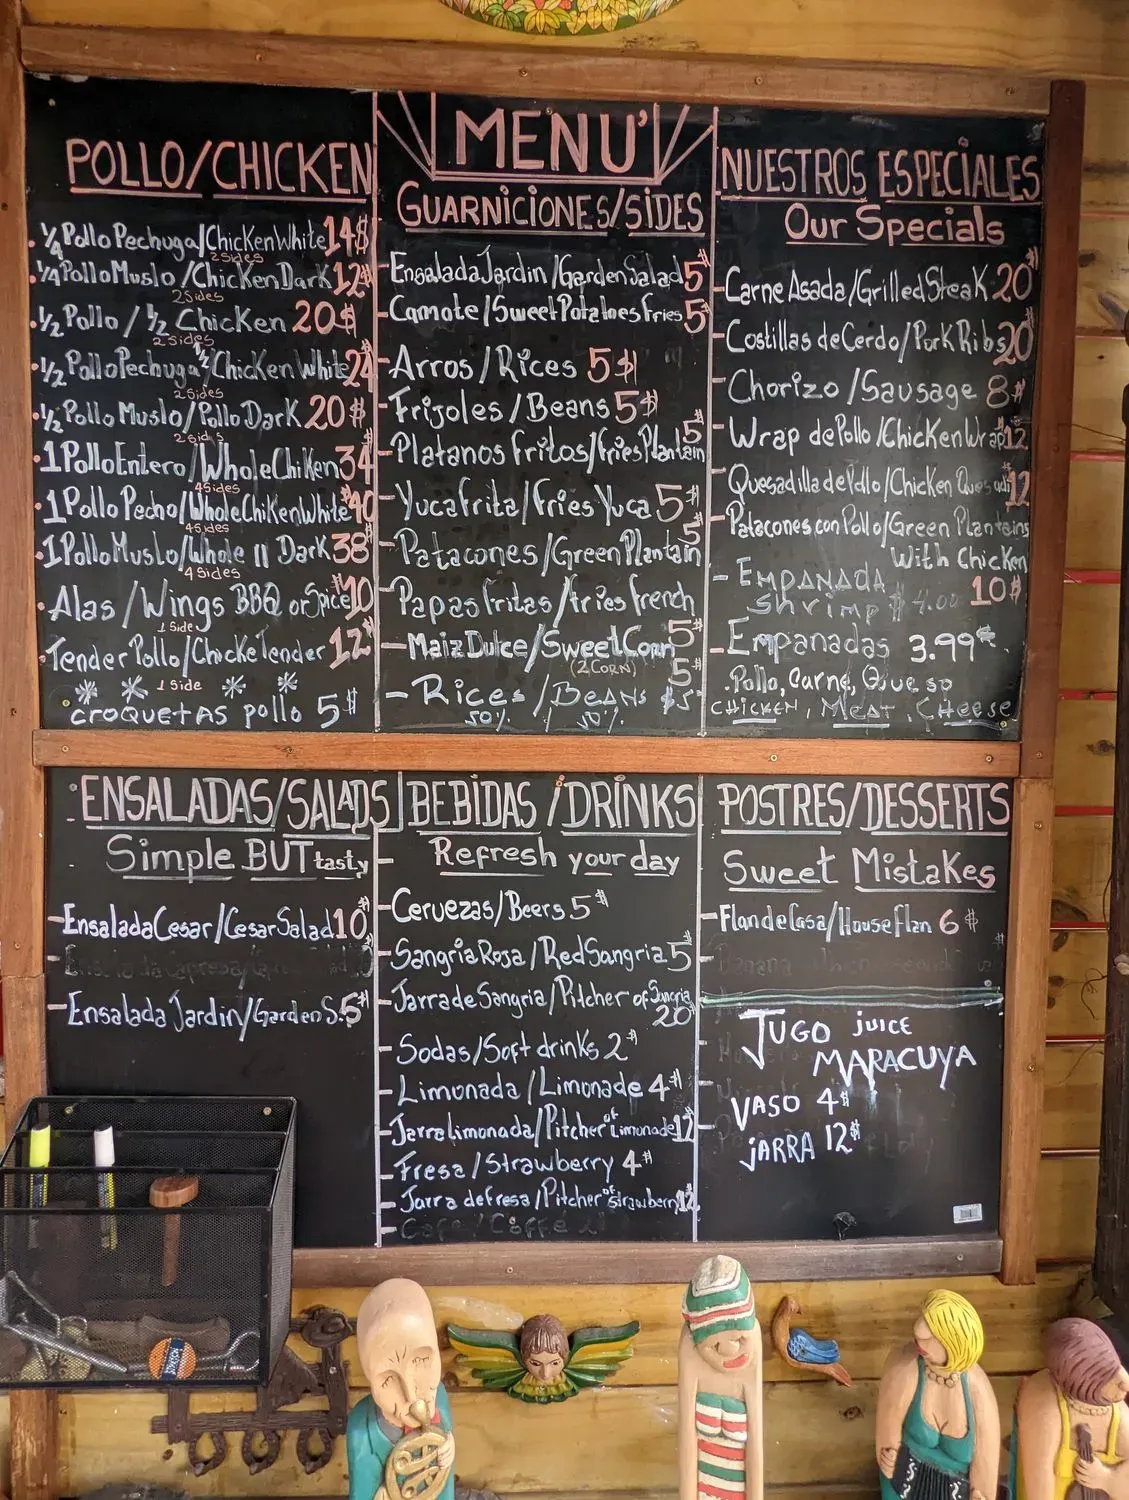 MENU'
POLLO/CHICKEN
. 1/4 Pollo Pechuga/Chicken White 14$
2 Sides
. 1/4 Pollo Muslo/Chicken Dark 12$
2 Sides
. 1/2 Pollo / 1/2 Chicken 20$
2 sides
. 1/2 Pollo Pechuga 1/2 Chicken White 24$
2 Sides
. 1/2 Pollo Muslo/Pollo Dark 20$
2 sides
. 1 Pollo Entero/Whole Chiken 34$
4 Sides
. 1 Pollo Pecho/Whole Chiken White 40$
4 Sides
. 1 Pollo Muslo/Whole 11 Dark 38$
4 Sides
. Alas/Wings BBQ or Spice 10$
1 Side
. Tender Pollo/Chicke Tender 12$
1 Side
* * * *
CROQUETAS pollo 5$
GUARNICIONES/SIDES
- Ensalada Jardin/Garden Salad 5$
- Camote/Sweet Potatoes Fries 5$
- Arros/Rices 5$
- Frijoles/Beans 5$
- Platanos Fritos/fries Plantain 5$
- Yuca frita/Fries Yuca 5$
- Patacones/Green Plantain 5$
- Papas fritas/fries french 5$
- Maiz Dulce/Sweet Corn 5$
(2 CORN)
- Rices/BEANS $5
50% / 50%
NUESTROS ESPECIALES
Our Specials
- Carne Asada/Grilled Steak 20$
- Costillas de Cerdo/Pork Ribs 20$
- Chorizo/Sausage 8$
- Wrap de Pollo/Chicken Wrap 12$
- Quesadilla de Pollo/Chicken 12$
- Patacones con Pollo/Green Plantains
With Chicken 10$
- EMPANADA
Shrimp $4.00
- Empanadas 3.99$.
. Pollo, Carne, Queso
CHICKEN, MEAT, CHEESE
ENSALADAS/SALADS
Simple BUT tasty
- Ensalada Cesar/Cesar Salad 10$
- Ensalada Jardin/Garden S. 5$
BEBIDAS/DRINKS
Refresh your day
- Cervezas/Beers 5$
- Sangria Roja/Red Sangria 5$
- Jarra de Sangria/Pitcher of Sangria
20$
- Sodas/Soft drinks 2$
- Limonada/Limonade 4$
- Jarra limonada/Pitcher of Limonade 12$
- Fresa/Strawberry 4$
- Jarra de Fresa/Pitcher of Strawberry 12$
- Cafe/Coffe
POSTRES/DESSERTS
Sweet Mistakes
- Flan de Casa/House Flan 6$
JUGO juice
MARACUYA
VASO 4$
JARRA 12$